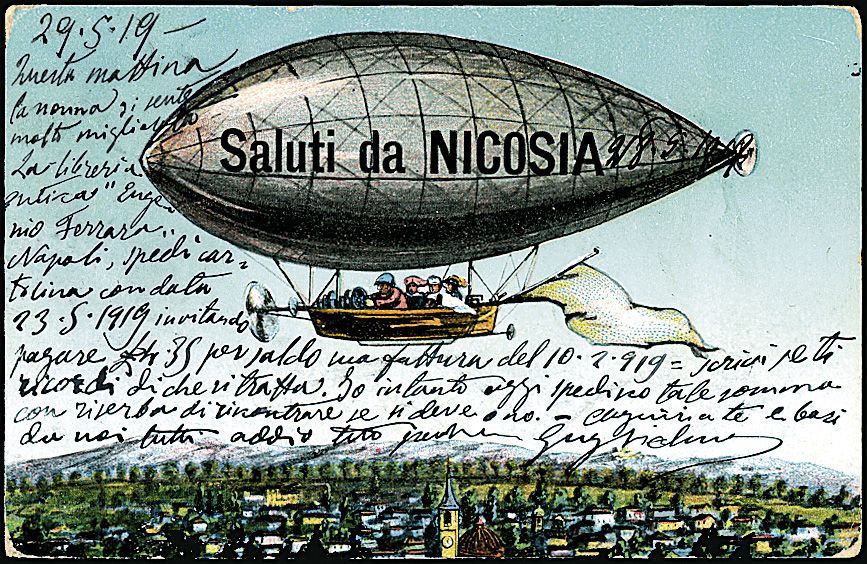 29.5.19-
Questa mattina
la nonna si sente
molto migliorata
La libreria
antica "Euge-
nio Ferrara"
Napoli, spedì car=
tolina con data
23.5.1919 invitando
Saluti da NICOSIA 28.5.
pagare 35 per saldo una fattura del 10.2.919= scrivi se ti
ricordi di che si tratta. Io intanto oggi spedirò tale somma
con riserba di riscontrare se si deve o no. - a te e baci
da noi tutti addio tuo Guglielmo